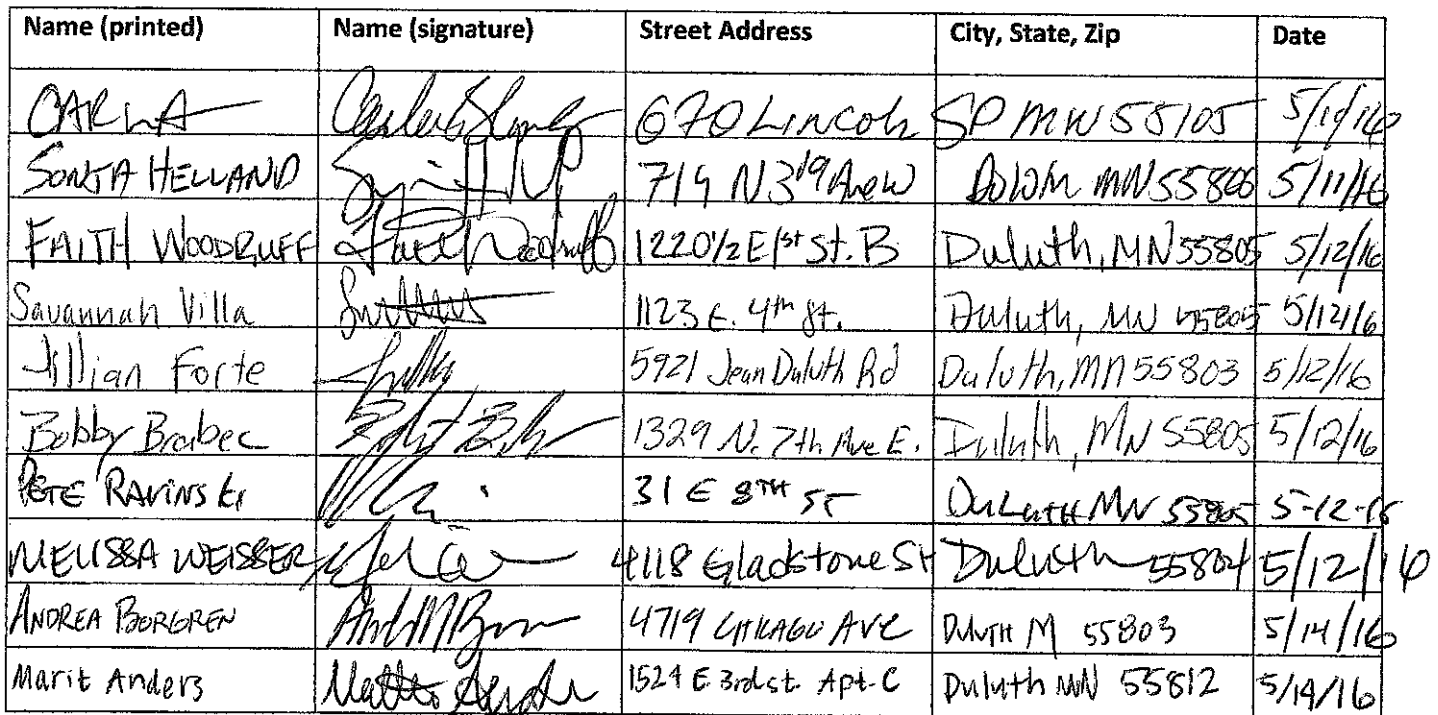 Name (printed) Name (signature) Street Address City, State, Zip Date
CARLA 670 Lincoln SP MN 55105
SONJA HELLAND 719 N 3rd Ave W MN 55806 5/11/16
FAITH WOODRUFF Faith Woodruff 1220 1/2 E 1st St. B Duluth, MN 55805 5/12/16
Savannah Villa 1123 E. 4th St. Duluth, MN 55805 5/12/16
Jillian Forte 5921 Jean Duluth Rd Duluth, MN 55803 5/12/16
Bobby Brabec 1329 N. 7th Ave E. Duluth, MN 55805 5/12/16
PETE RAVINSKI 31 E 8TH ST DULUTH MN 55805 5-12-16
MELISSA WEISSER 4118 Gladstone St Duluth 55804 5/12/16
ANDREA BORGREN 4719 CHICAGO AVE DULUTH M 55803 5/14/16
Marit Anders 1524 E. 3rd st. Apt. C Duluth MN 55812 5/14/16